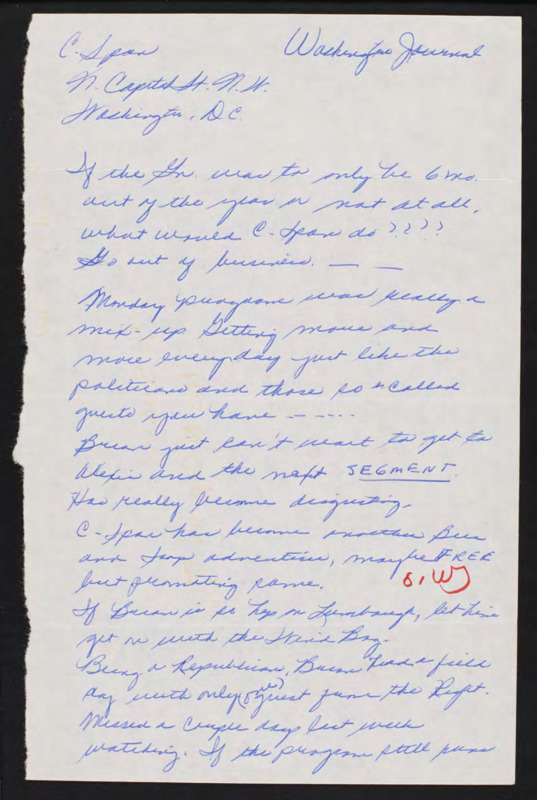 C-Span Washington Journal
N. Capitol St. N.W.
Washington, D.C.
If the Gn. was to only be 6 mo.
out of the year or not at all,
what would C-Span do ? ? ? ?
Go out of business. — —
Monday program was really a
mix-up Getting more and
more everyday just like the
politicians and those so-called
guests you have - - - - -
Brian just can't wait to get to
Alexis and the next SEGMENT.
Has really become disgusting.
C-Span has become another
and advertise, maybe FREE
but promoting same.
If Brian is so hep on Limbaugh, let him
get on with the Wind Bag.
Being a Republican, Brian had a field
day with only (one) guest from the Right.
Missed a couple days last week
watching. If the program still runs